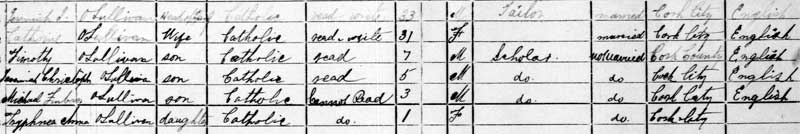 Jeremiah J. O'Sullivan Head of Family Catholic read & write 33 M Tailor married Cork City English
Catherine O'Sullivan Wife Catholic read & write 31 F married Cork City English
Timothy O'Sullivan son Catholic read 7 M Scholar not married Cork County English
Jeremiah Christoph O'Sullivan son Catholic read 5 M do. do Cork City English
Michael O'Sullivan son Catholic Cannot Read 3 M do. do Cork City English
Tryphnea Anna O'Sullivan daughter Catholic do. 1 F do Cork City